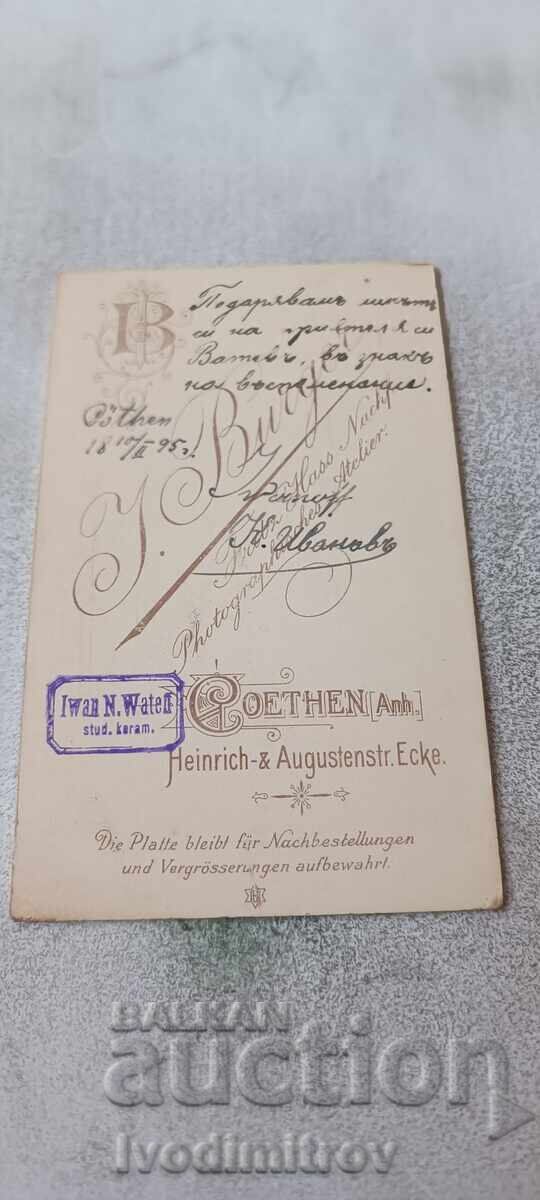 JB
Подарявамъ ликътъ
си на приятеля си
Ватевъ, въ знакъ
на въспоменание.
Cöthen
18 17/II 95 г.
J. Burger
Rob. Hass Nachf.
Photographisches Atelier.
К. Ивановъ
Iwan N. Wateff
stud. keram.
COETHEN [Anh.]
Heinrich-& Augustenstr. Ecke.
Die Platte bleibt für Nachbestellungen
und Vergrösserungen aufbewahrt.
BALKAN
auction
Ivodimitrov